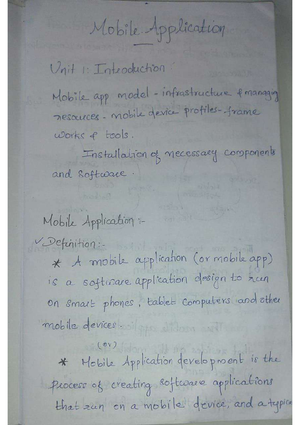 Mobile Application
Unit 1: Introduction
Mobile app model - infrastructure & managing
resources - mobile device profiles - frame
works & tools.
Installation of necessary components
and Software.
Mobile Application :-
✓ Definition :-
* A mobile application (or mobile app)
is a software application design to run
on smart phones, tablet computers and other
mobile devices.
(or)
* Mobile Application development is the
process of creating software applications
that run on a mobile device, and a typica